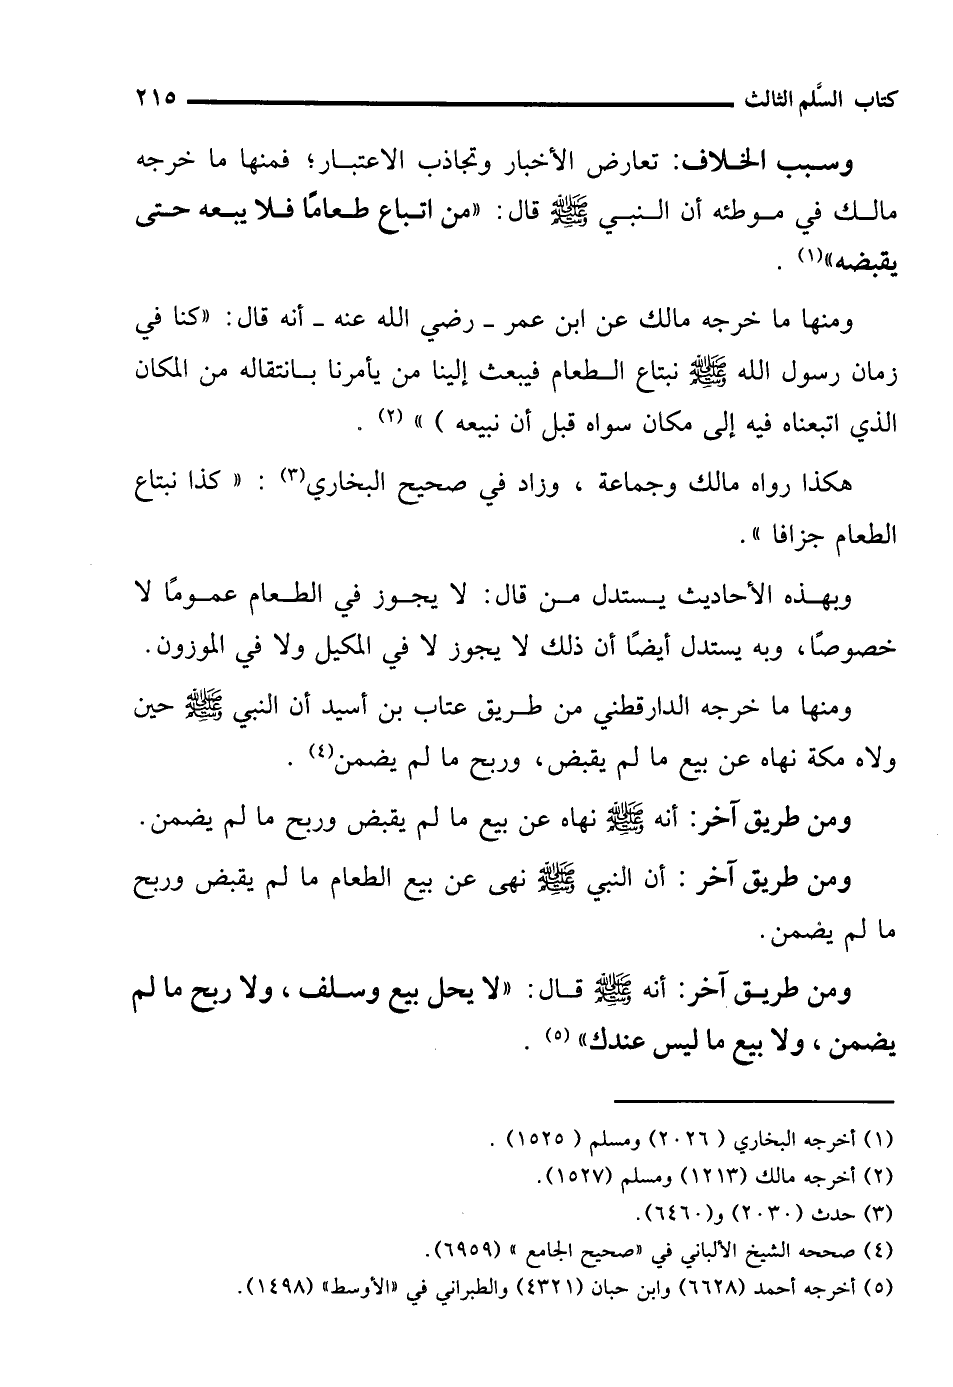 كتاب السَّلم الثالث ٢١٥
وسبب الخلاف: تعارض الأخبار وتجاذب الاعتبار؛ فمنها ما خرجه
مالك في موطئه أن النبي ﷺ قال: «من اتباع طعامًا فلا يبعه حتى
يقبضه»(١) .
ومنها ما خرجه مالك عن ابن عمر ـ رضي الله عنه ـ أنه قال: «كنا في
زمان رسول الله ﷺ نبتاع الطعام فيبعث إلينا من يأمرنا بانتقاله من المكان
الذي اتبعناه فيه إلى مكان سواه قبل أن نبيعه ) » (٢) .
هكذا رواه مالك وجماعة ، وزاد في صحيح البخاري(٣) : « كذا نبتاع
الطعام جزافا ».
وبهذه الأحاديث يستدل من قال: لا يجوز في الطعام عمومًا لا
خصوصًا، وبه يستدل أيضًا أن ذلك لا يجوز لا في المكيل ولا في الموزون.
ومنها ما خرجه الدارقطني من طريق عتاب بن أسيد أن النبي ﷺ حين
ولاه مكة نهاه عن بيع ما لم يقبض، وربح ما لم يضمن(٤) .
ومن طريق آخر: أنه ﷺ نهاه عن بيع ما لم يقبض وربح ما لم يضمن.
ومن طريق آخر : أن النبي ﷺ نهى عن بيع الطعام ما لم يقبض وربح
ما لم يضمن.
ومن طريق آخر: أنه ﷺ قال: «لا يحل بيع وسلف ، ولا ربح ما لم
يضمن ، ولا بيع ما ليس عندك» (٥) .
(١) أخرجه البخاري ( ٢٠٢٦) ومسلم ( ١٥٢٥) .
(٢) أخرجه مالك (١٢١٣) ومسلم (١٥٢٧).
(٣) حدث (٢٠٣٠) و(٦٤٦٠).
(٤) صححه الشيخ الألباني في «صحيح الجامع » (٦٩٥٩).
(٥) أخرجه أحمد (٦٦٢٨) وابن حبان (٤٣٢١) والطبراني في «الأوسط» (١٤٩٨).